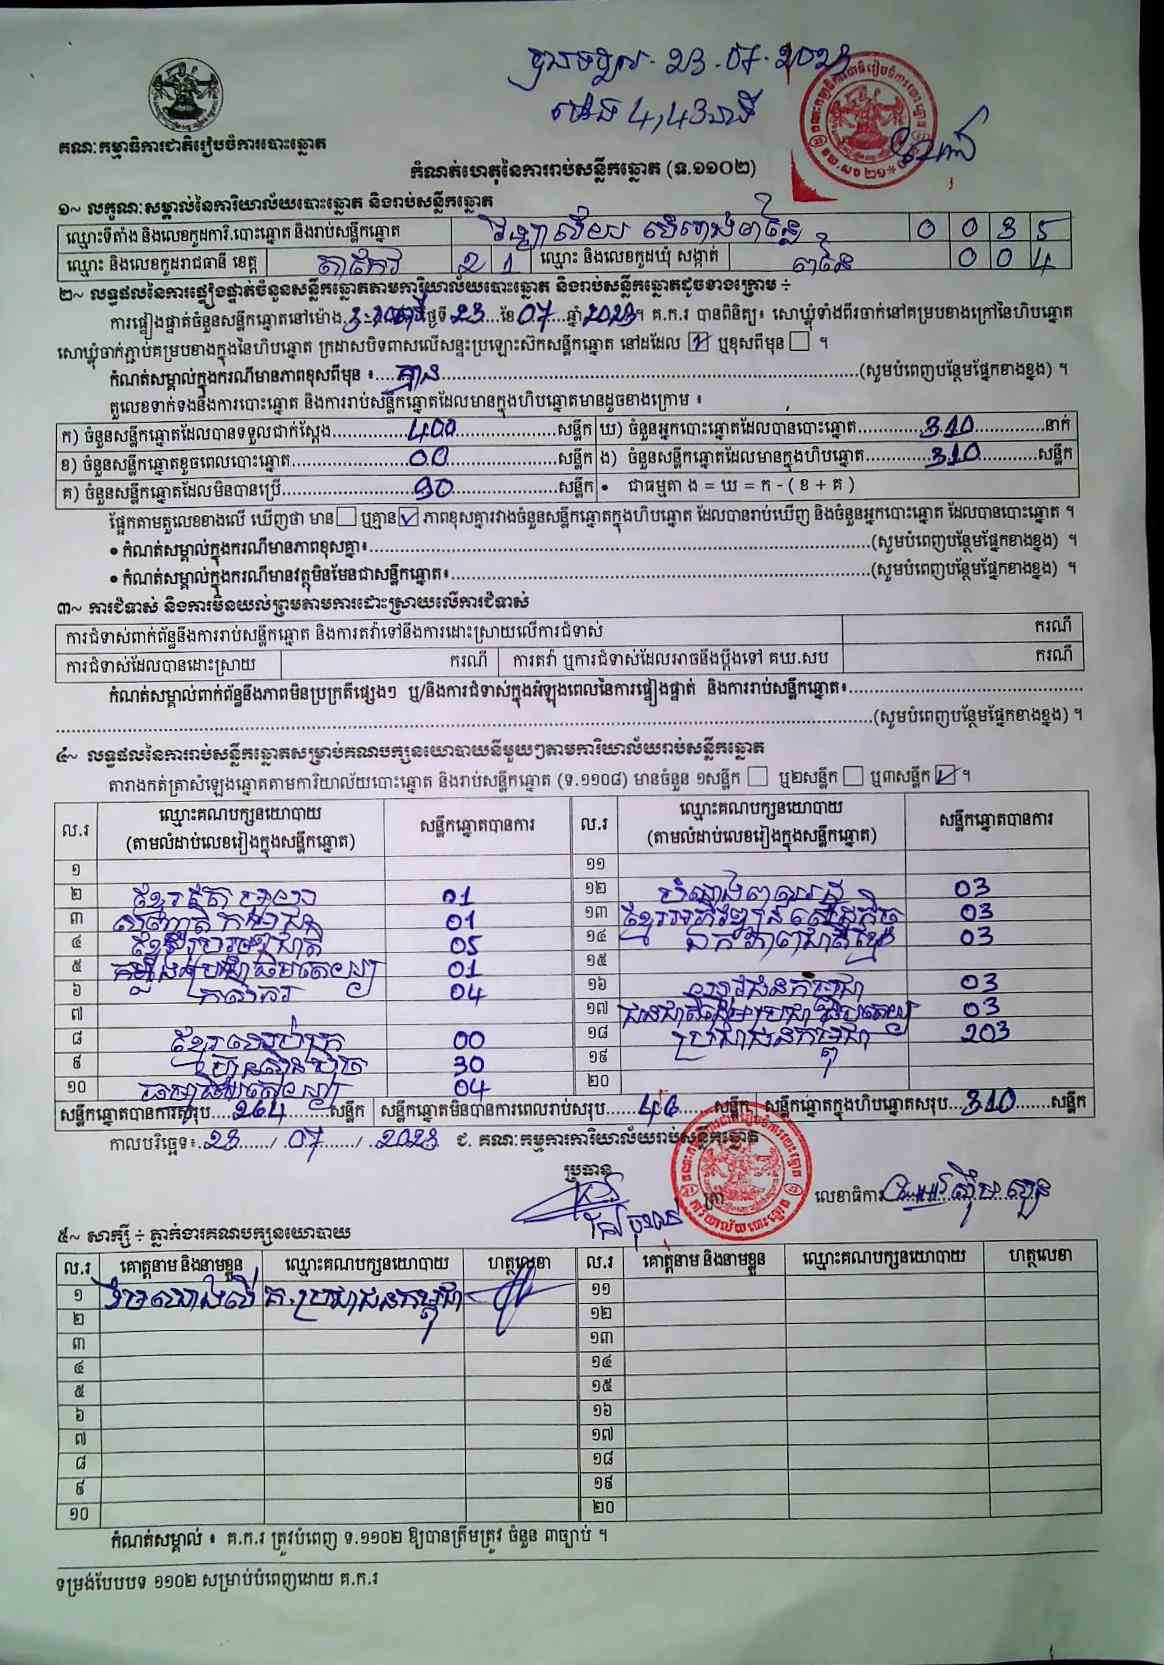 បានទទួល 23.07.2023
ម៉ោង 4,43នាទី
គណៈកម្មាធិការជាតិរៀបចំការបោះឆ្នោត
កំណត់ហេតុនៃការរាប់សន្លឹកឆ្នោត (ទ.១១០២)
១~ លក្ខណៈសម្គាល់នៃការិយាល័យបោះឆ្នោត និងរាប់សន្លឹកឆ្នោត
ឈ្មោះទីតាំង និងលេខកូដការិ.បោះឆ្នោត និងរាប់សន្លឹកឆ្នោត 0 0 3 5
ឈ្មោះ និងលេខកូដរាជធានី ខេត្ត តាកែវ 2 1 ឈ្មោះ និងលេខកូដឃុំ សង្កាត់ 0 0 4
២~ លទ្ធផលនៃការផ្ទៀងផ្ទាត់ចំនួនសន្លឹកឆ្នោតតាមការិយាល័យបោះឆ្នោត និងរាប់សន្លឹកឆ្នោតដូចខាងក្រោម ÷
ការផ្ទៀងផ្ទាត់ចំនួនសន្លឹកឆ្នោតនៅម៉ោង ថ្ងៃទី 23 ខែ 07 ឆ្នាំ 2023 ។ គ.ក.រ បានពិនិត្យ៖ សោឃ្លុំទាំងពីរចាក់នៅគម្របខាងក្រៅនៃហិបឆ្នោត
សោឃ្លុំចាក់ភ្ជាប់គម្របខាងក្នុងនៃហិបឆ្នោត ក្រដាសបិទពាសលើសន្ទះប្រឡោះស៊កសន្លឹកឆ្នោត នៅដដែល ☑ ឬខុសពីមុន ☐ ។
កំណត់សម្គាល់ក្នុងករណីមានភាពខុសពីមុន ៖ គ្មាន (សូមបំពេញបន្ថែមផ្នែកខាងខ្នង) ។
តួលេខទាក់ទងនឹងការបោះឆ្នោត និងការរាប់សន្លឹកឆ្នោតដែលមានក្នុងហិបឆ្នោតមានដូចខាងក្រោម ៖
ក) ចំនួនសន្លឹកឆ្នោតដែលបានទទួលជាក់ស្តែង 400 សន្លឹក ឃ) ចំនួនអ្នកបោះឆ្នោតដែលបានបោះឆ្នោត 310 នាក់
ខ) ចំនួនសន្លឹកឆ្នោតខូចពេលបោះឆ្នោត 00 សន្លឹក ង) ចំនួនសន្លឹកឆ្នោតដែលមានក្នុងហិបឆ្នោត 310 សន្លឹក
គ) ចំនួនសន្លឹកឆ្នោតដែលមិនបានប្រើ 90 សន្លឹក • ជាធម្មតា ង = ឃ = ក - ( ខ + គ )
ផ្អែកតាមតួលេខខាងលើ ឃើញថា មាន ☐ ឬគ្មាន ☑ ភាពខុសគ្នារវាងចំនួនសន្លឹកឆ្នោតក្នុងហិបឆ្នោត ដែលបានរាប់ឃើញ និងចំនួនអ្នកបោះឆ្នោត ដែលបានបោះឆ្នោត ។
• កំណត់សម្គាល់ក្នុងករណីមានភាពខុសគ្នា៖ (សូមបំពេញបន្ថែមផ្នែកខាងខ្នង) ។
• កំណត់សម្គាល់ក្នុងករណីមានវត្ថុមិនមែនជាសន្លឹកឆ្នោត៖ (សូមបំពេញបន្ថែមផ្នែកខាងខ្នង) ។
៣~ ការជំទាស់ និងការមិនយល់ព្រមតាមការដោះស្រាយលើការជំទាស់
ការជំទាស់ពាក់ព័ន្ធនឹងការរាប់សន្លឹកឆ្នោត និងការតវ៉ាទៅនឹងការដោះស្រាយលើការជំទាស់ ករណី
ការជំទាស់ដែលបានដោះស្រាយ ករណី ការតវ៉ា ឬការជំទាស់ដែលអាចនឹងប្តឹងទៅ គឃ.សប ករណី
កំណត់សម្គាល់ពាក់ព័ន្ធនឹងភាពមិនប្រក្រតីផ្សេងៗ ឬ/និងការជំទាស់ក្នុងអំឡុងពេលនៃការផ្ទៀងផ្ទាត់ និងការរាប់សន្លឹកឆ្នោត៖
(សូមបំពេញបន្ថែមផ្នែកខាងខ្នង) ។
៤~ លទ្ធផលនៃការរាប់សន្លឹកឆ្នោតសម្រាប់គណបក្សនយោបាយនីមួយៗតាមការិយាល័យរាប់សន្លឹកឆ្នោត
តារាងកត់ត្រាសំឡេងឆ្នោតតាមការិយាល័យបោះឆ្នោត និងរាប់សន្លឹកឆ្នោត (ទ.១១០៨) មានចំនួន ១សន្លឹក ☐ ឬ២សន្លឹក ☐ ឬ៣សន្លឹក ☑ ។
ល.រ ឈ្មោះគណបក្សនយោបាយ (តាមលំដាប់លេខរៀងក្នុងសន្លឹកឆ្នោត) សន្លឹកឆ្នោតបានការ ល.រ ឈ្មោះគណបក្សនយោបាយ (តាមលំដាប់លេខរៀងក្នុងសន្លឹកឆ្នោត) សន្លឹកឆ្នោតបានការ
១ ១១
២ 01 ១២ 03
៣ 01 ១៣ 03
៤ 05 ១៤ ឯកភាពជាតិខ្មែរ 03
៥ កម្លាំងប្រជាធិបតេយ្យ 01 ១៥
៦ កសិករ 04 ១៦ យុវជនកម្ពុជា 03
៧ ១៧ 03
៨ 00 ១៨ ប្រជាជនកម្ពុជា 203
៩ ហ៊្វុនស៊ិនប៉ិច 30 ១៩
១០ ធម្មាធិបតេយ្យ 04 ២០
សន្លឹកឆ្នោតបានការសរុប 264 សន្លឹក សន្លឹកឆ្នោតមិនបានការពេលរាប់សរុប 46 សន្លឹក សន្លឹកឆ្នោតក្នុងហិបឆ្នោតសរុប 310 សន្លឹក
កាលបរិច្ឆេទ៖ 23 / 07 / 2023 ជ. គណៈកម្មការការិយាល័យរាប់សន្លឹកឆ្នោត
ប្រធាន ត្រា លេខាធិការ
៥~ សាក្សី ÷ ភ្នាក់ងារគណបក្សនយោបាយ
ល.រ គោត្តនាម និងនាមខ្លួន ឈ្មោះគណបក្សនយោបាយ ហត្ថលេខា ល.រ គោត្តនាម និងនាមខ្លួន ឈ្មោះគណបក្សនយោបាយ ហត្ថលេខា
១ គ.ប្រជាជនកម្ពុជា ១១
២ ១២
៣ ១៣
៤ ១៤
៥ ១៥
៦ ១៦
៧ ១៧
៨ ១៨
៩ ១៩
១០ ២០
កំណត់សម្គាល់ ៖ គ.ក.រ ត្រូវបំពេញ ទ.១១០២ ឱ្យបានត្រឹមត្រូវ ចំនួន ៣ច្បាប់ ។
ទម្រង់បែបបទ ១១០២ សម្រាប់បំពេញដោយ គ.ក.រ